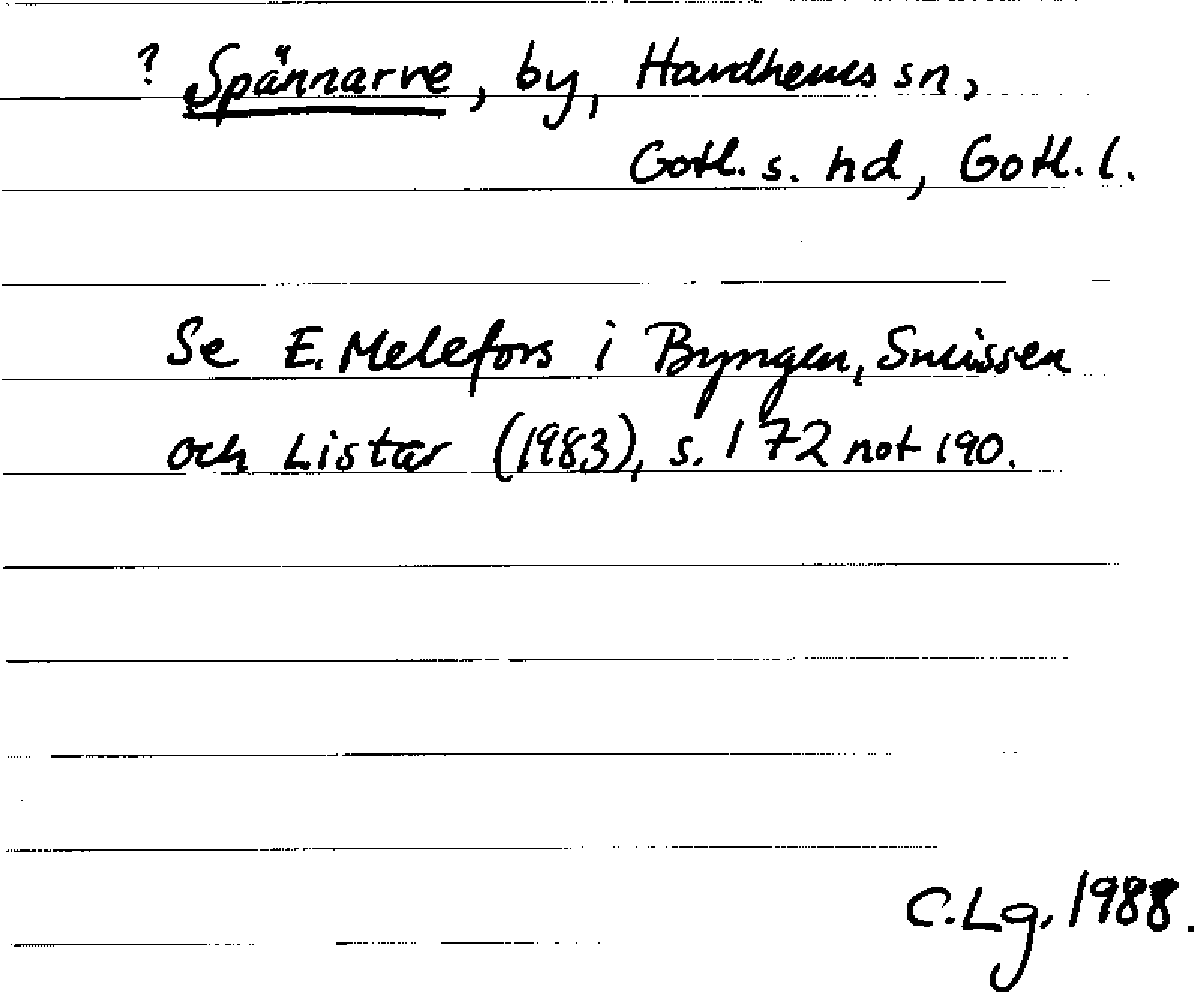 ? Spännarve, by, Havdhems sn,
Gotl. s. hd, Gotl. l.
Se E. Melefors i Byngen, Sneissen
och Listar (1983), s. 172 not 190.
C.Lg. 1988.